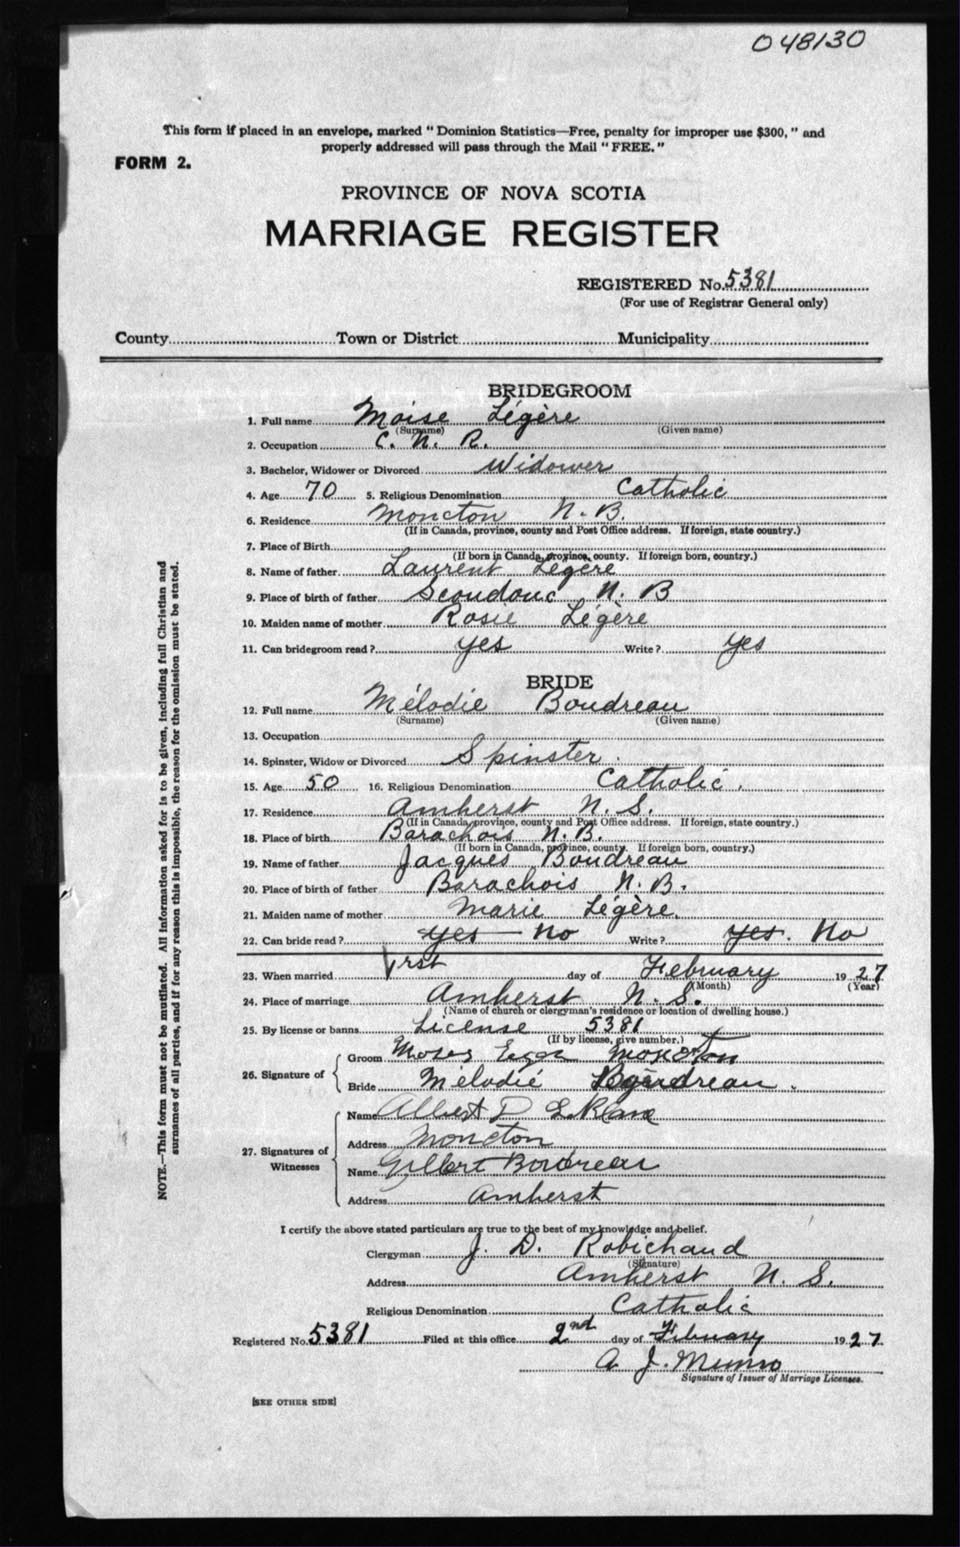 048130
This form if placed in an envelope, marked "Dominion Statistics—Free, penalty for improper use $300," and
properly addressed will pass through the Mail "FREE."
FORM 2.
PROVINCE OF NOVA SCOTIA
MARRIAGE REGISTER
REGISTERED No. 5381
(For use of Registrar General only)
County Town or District Municipality
BRIDEGROOM
1. Full name Moise Légère
(Surname) (Given name)
2. Occupation C. N. R.
3. Bachelor, Widower or Divorced Widower
4. Age 70 5. Religious Denomination Catholic
6. Residence Moncton N. B.
(If in Canada, province, county and Post Office address. If foreign, state country.)
7. Place of Birth
(If born in Canada, province, county. If foreign born, country.)
8. Name of father Laurent Légère
9. Place of birth of father Scoudouc N. B
10. Maiden name of mother Rosie Légère
11. Can bridegroom read? yes Write? yes
BRIDE
12. Full name Mélodie Boudreau
(Surname) (Given name)
13. Occupation
14. Spinster, Widow or Divorced Spinster.
15. Age 50 16. Religious Denomination Catholic.
17. Residence Amherst N. S.
(If in Canada, province, county and Post Office address. If foreign, state country.)
18. Place of birth Barachois N. B.
(If born in Canada, province, county. If foreign born, country.)
19. Name of father Jacques Boudreau
20. Place of birth of father Barachois N. B.
21. Maiden name of mother Marie Légère.
22. Can bride read? yes No Write? yes. No
23. When married 1rst day of February 1927
(Month) (Year)
24. Place of marriage Amherst N. S.
(Name of church or clergyman's residence or location of dwelling house.)
25. By license or banns License 5381
(If by license, give number.)
26. Signature of
Groom Moses Moncton
Bride Mélodié Boudreau.
27. Signatures of Witnesses
Name Albert D
Address Moncton
Name Gilbert Boudreau
Address Amherst
I certify the above stated particulars are true to the best of my knowledge and belief.
Clergyman J. D. Robichaud
(Signature)
Address Amherst N. S.
Religious Denomination Catholic
Registered No. 5381 Filed at this office 2nd day of February 1927.
A. J. Munro
Signature of Issuer of Marriage Licenses.
[SEE OTHER SIDE]
NOTE.—This form must not be mutilated. All information asked for is to be given, including full Christian and
surnames of all parties, and if for any reason this is impossible, the reason for the omission must be stated.